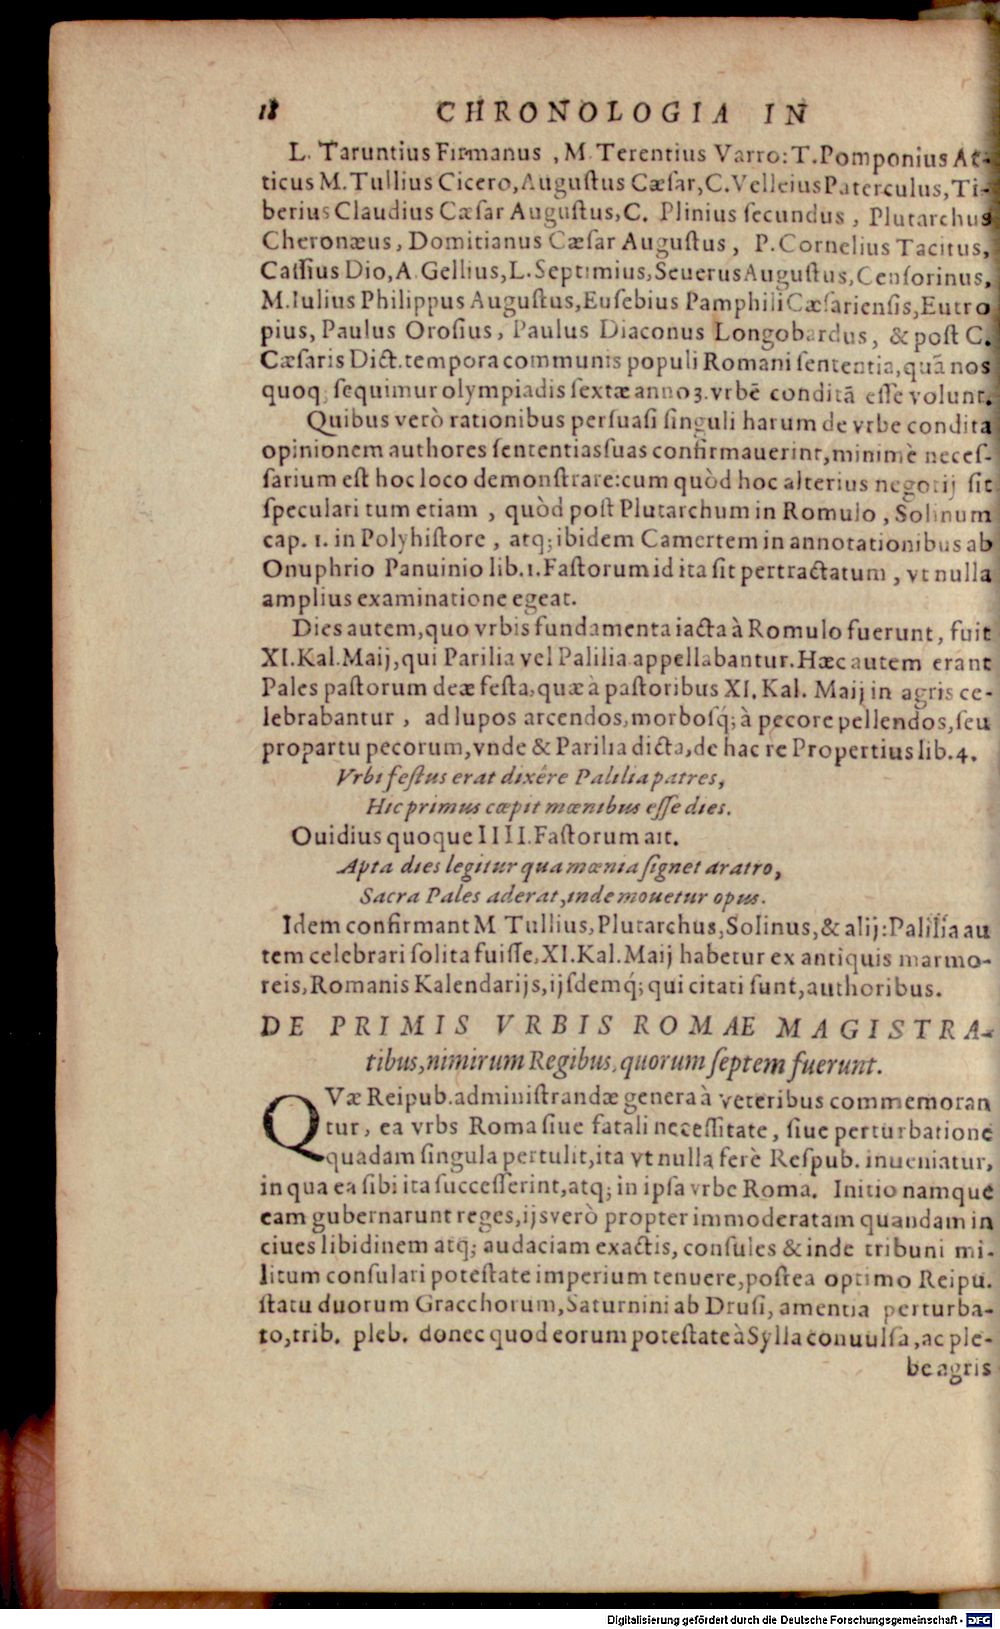 18 CHRONOLOGIA IN
L. Taruntius Firmanus , M. Terentius Varro: T. Pomponius At-
ticus M. Tullius Cicero, Augustus Cæſar, C. Velleius Paterculus, Ti-
berius Claudius Cæſar Auguſtus, C. Plinius ſecundus , Plutarchus
Cheronæus, Domitianus Cæſar Auguſtus, P. Cornelius Tacitus,
Caſſius Dio, A. Gellius, L. Septimius, Seuerus Auguſtus, Cenſorinus,
M. Iulius Philippus Auguſtus, Euſebius Pamphili Cæſarienſis, Eutro
pius, Paulus Oroſius, Paulus Diaconus Longobardus, & poſt C.
Cæſaris Dict. tempora communis populi Romani ſententia, quā nos
quoq; ſequimur olympiadis ſextæ anno 3. vrbē conditā eſſe volunt.
Quibus verò rationibus perſuaſi ſinguli harum de vrbe condita
opinionem authores ſententias ſuas confirmauerint, minimè neceſ-
ſarium eſt hoc loco demonſtrare: cum quòd hoc alterius negotij ſit
ſpeculari tum etiam , quòd poſt Plutarchum in Romulo , Solinum
cap. 1. in Polyhiſtore , atq; ibidem Camertem in annotationibus ab
Onuphrio Panuinio lib. 1. Faſtorum id ita ſit pertractatum , vt nulla
amplius examinatione egeat.
Dies autem, quo vrbis fundamenta iacta à Romulo fuerunt, fuit
XI. Kal. Maij, qui Parilia vel Palilia appellabantur. Hæc autem erant
Pales paſtorum deæ feſta, quæ à paſtoribus XI. Kal. Maij in agris ce-
lebrabantur , ad lupos arcendos, morboſq́; à pecore pellendos, ſeu
pro partu pecorum, vnde & Parilia dicta, de hac re Propertius lib. 4.
Vrbi feſtus erat dixêre Palilia patres,
Hic primus cœpit mœnibus eſſe dies.
Ouidius quoque IIII. Faſtorum ait.
Apta dies legitur qua mœnia ſignet aratro,
Sacra Pales aderat, inde mouetur opus.
Idem confirmant M Tullius, Plutarchus, Solinus, & alij: Palilia au
tem celebrari ſolita fuiſſe, XI. Kal. Maij habetur ex antiquis marmo-
reis, Romanis Kalendarijs, ijſdemq́; qui citati ſunt, authoribus.
DE PRIMIS VRBIS ROMAE MAGISTRA-
tibus, nimirum Regibus, quorum ſeptem fuerunt.
QVæ Reipub. adminiſtrandæ genera à veteribus commemoran
tur, ea vrbs Roma ſiue fatali neceſſitate, ſiue perturbatione
quadam ſingula pertulit, ita vt nulla ferè Reſpub. inueniatur,
in qua ea ſibi ita ſucceſſerint, atq; in ipſa vrbe Roma. Initio namque
eam gubernarunt reges, ijs verò propter immoderatam quandam in
ciues libidinem atq; audaciam exactis, conſules & inde tribuni mi-
litum conſulari poteſtate imperium tenuere, poſtea optimo Reipu.
ſtatu duorum Gracchorum, Saturnini ab Druſi, amentia perturba-
to, trib. pleb. donec quod eorum poteſtate à Sylla conuulſa, ac ple-
be agris
Digitalisierung gefördert durch die Deutsche Forschungsgemeinschaft - DFG